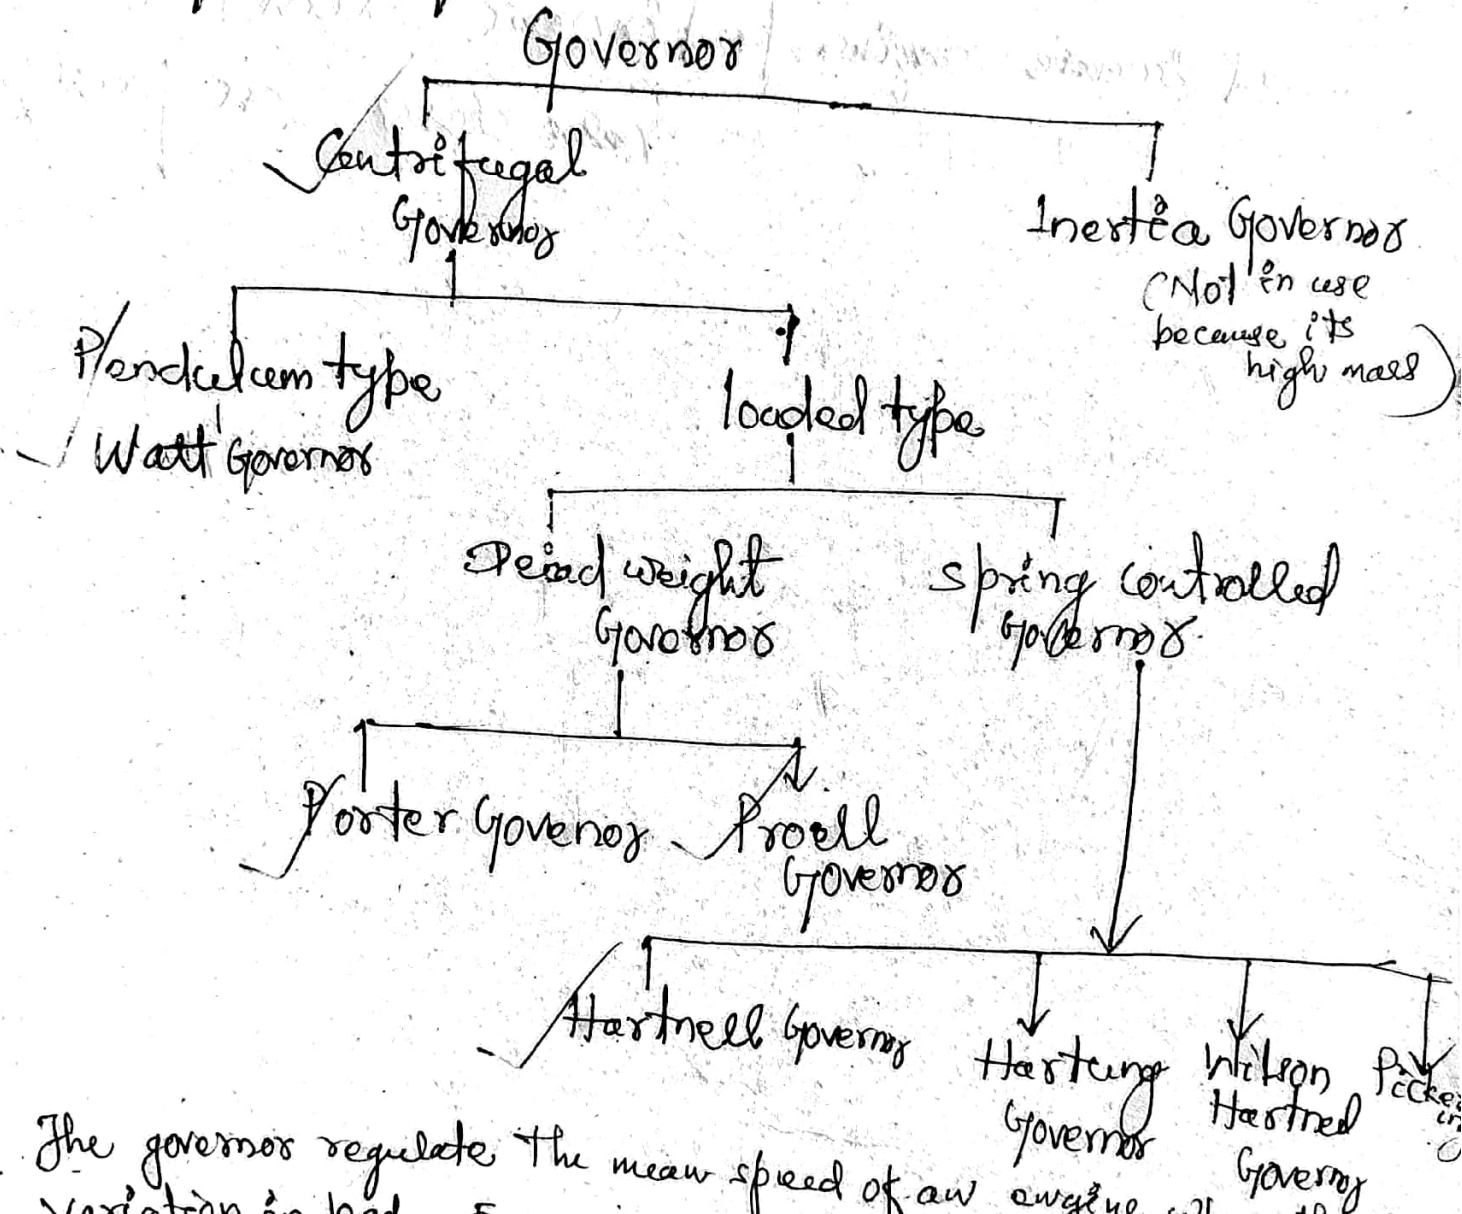 Governor
Centrifugal
Governor
Inertia Governor
(Not in use
because its
high mass)
Pendulum type
Watt Governor
loaded type
Dead weight
Governor
Spring Controlled
Governor
Porter Govenor
Proell
Governor
Hartnell Governor
Hartung
Governor
Wilson
Hartnell
Governor
Picker
in
g
The governor regulate the mean speed of an engine
variation in load